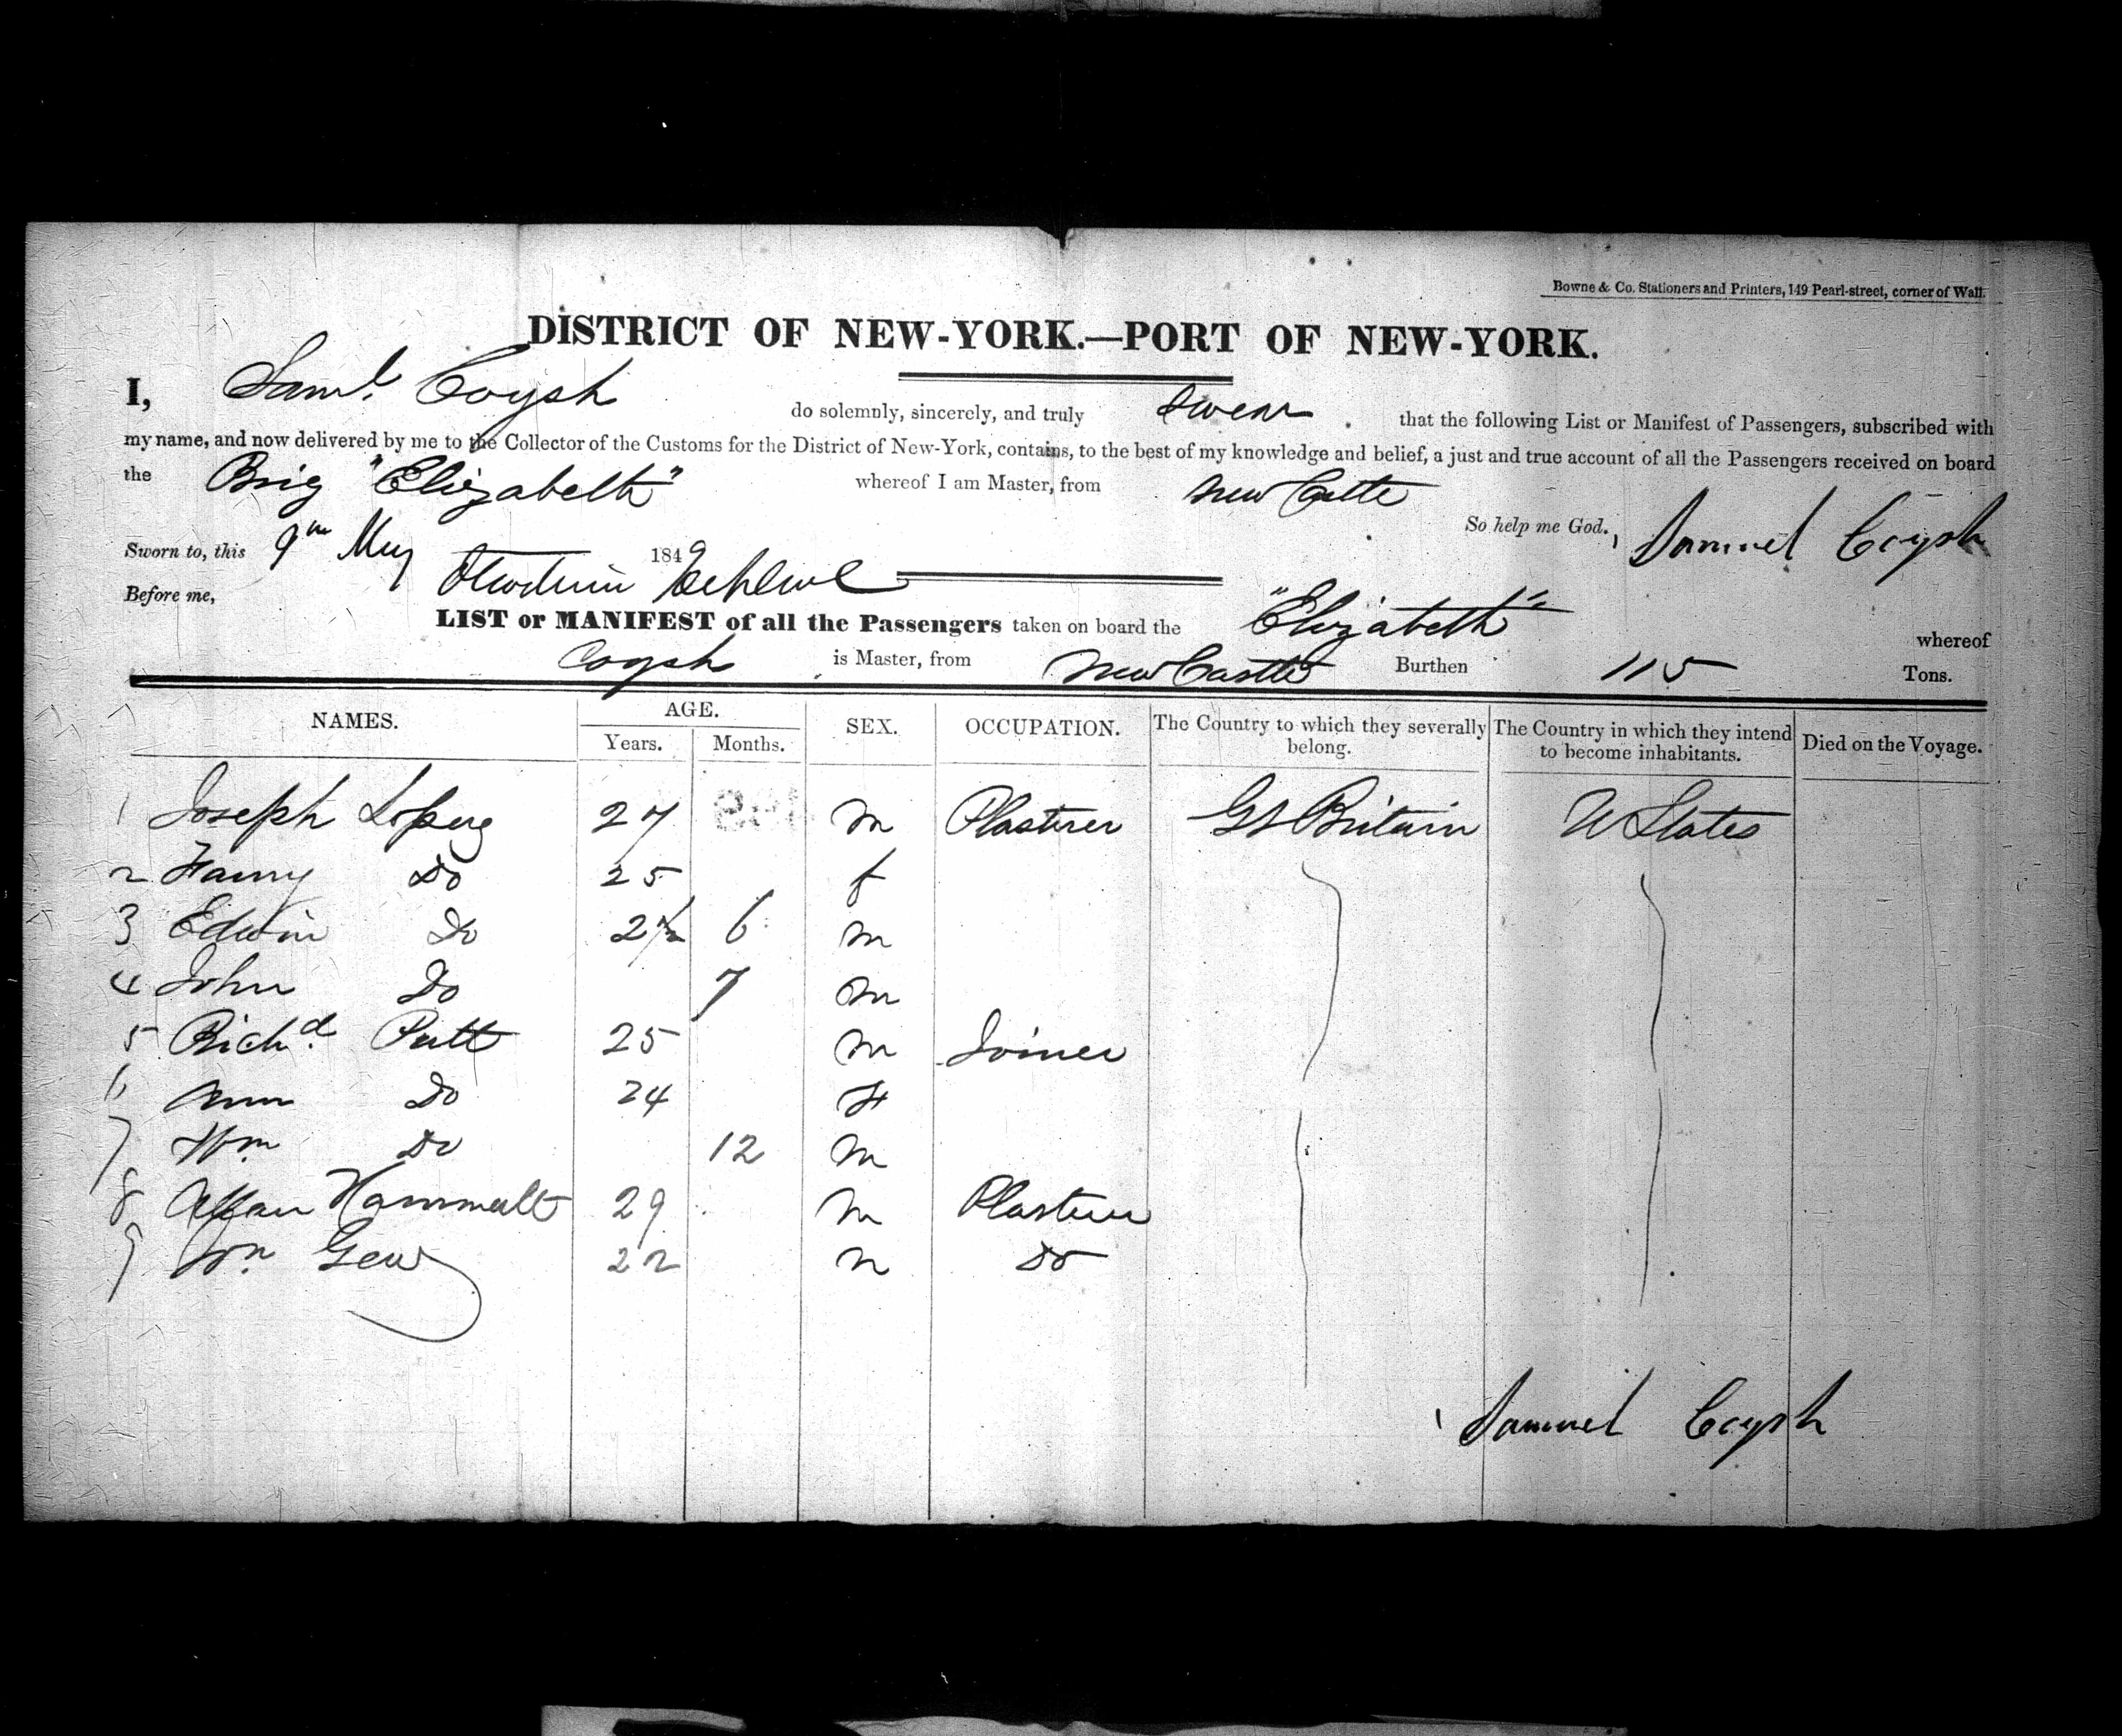 Bowne & Co. Stationers and Printers, 149 Pearl-street, corner of Wall.
DISTRICT OF NEW-YORK.—PORT OF NEW-YORK.
I, Saml. Coysh do solemnly, sincerely, and truly swear that the following List or Manifest of Passengers, subscribed with
my name, and now delivered by me to the Collector of the Customs for the District of New-York, contains, to the best of my knowledge and belief, a just and true account of all the Passengers received on board
the Brig "Elizabeth" whereof I am Master, from New Castle
So help me God. Samuel Coysh
Sworn to, this 9th May 1849
Before me,
LIST or MANIFEST of all the Passengers taken on board the "Elizabeth" whereof
Coysh is Master, from New Castle Burthen 115 Tons.
NAMES. AGE. Years. Months. SEX. OCCUPATION. The Country to which they severally belong. The Country in which they intend to become inhabitants. Died on the Voyage.
1 Joseph 27 M Plasterer Gt Britain U States
2 Fanny Do 25 f
3 Edwin Do 2 6 M
4 John Do 7 M
5 Richd. Putt 25 M Joiner
6 Ann Do 24 F
7 Wm Do 12 M
8 29 M Plasterer
9 Wm 22 M Do
Samuel Coysh